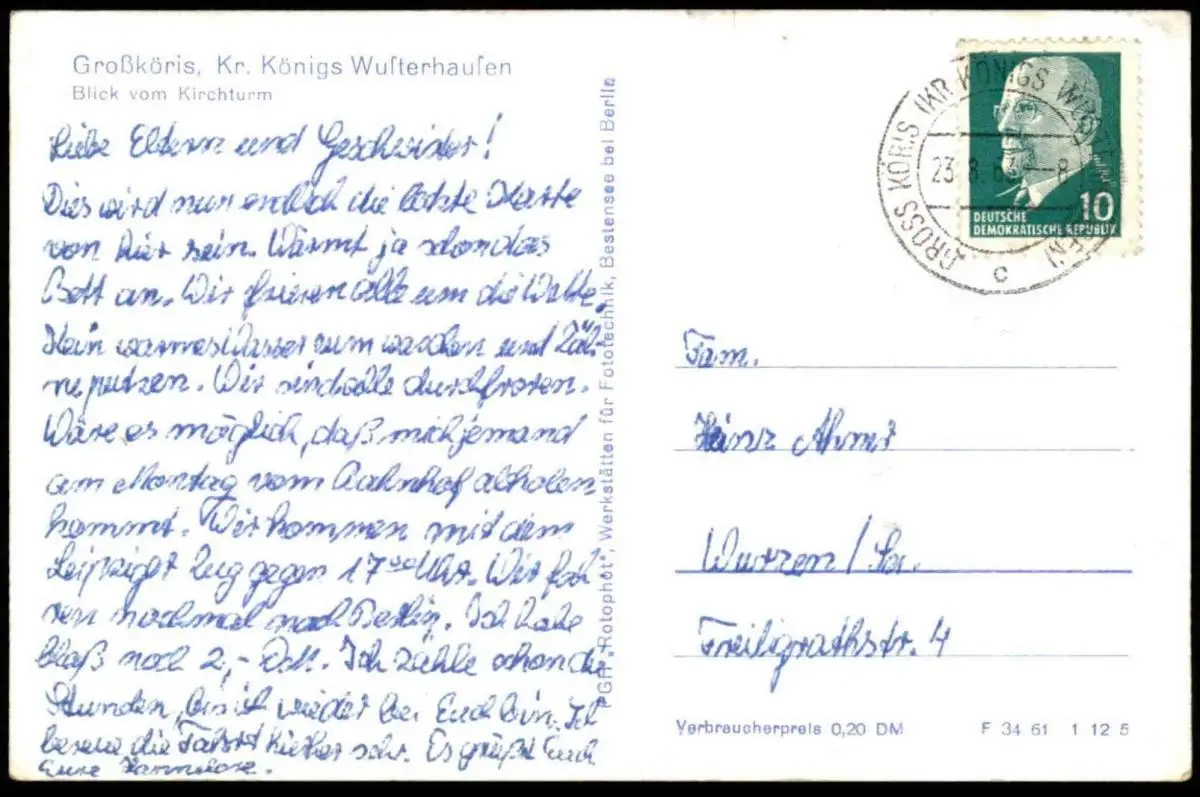 Großköris, Kr. Königs Wusterhausen
Blick vom Kirchturm
Liebe Eldern und Geschwister!
Dies wird nun endlich die letzte Karte
von hier sein. Wärmt ja schon das
Bett an. Wir frieren alle um die Wette.
Kein warmes Wasser zum waschen und Zäh-
neputzen. Wir sind alle durchfroren.
Wäre es möglich, daß mich jemand
am Montag vom Bahnhof abholen
kommt. Wir kommen mit dem
Leipziger Zug gegen 17 Uhr. Wir fah-
ren nochmal nach Berlin. Ich habe
blaß noch 2,- DM. Ich zähle schon die
Stunden, bis ich wieder bei Euch bin. Ich
bereue die Fahrt hierher sehr. Es grüßt Euch
Eure
PGH „Rotophot", Werkstätten für Fototechnik, Bestensee bei Berlin
GROSS KÖRIS (KR KÖNIGS
23.8.6 -8
c
10
DEUTSCHE
DEMOKRATISCHE REPUBLIK
Fam.
Heinz
Wurzen/Sa.
Freiligrathstr. 4
Verbraucherpreis 0,20 DM
F 34 61 1 12 5